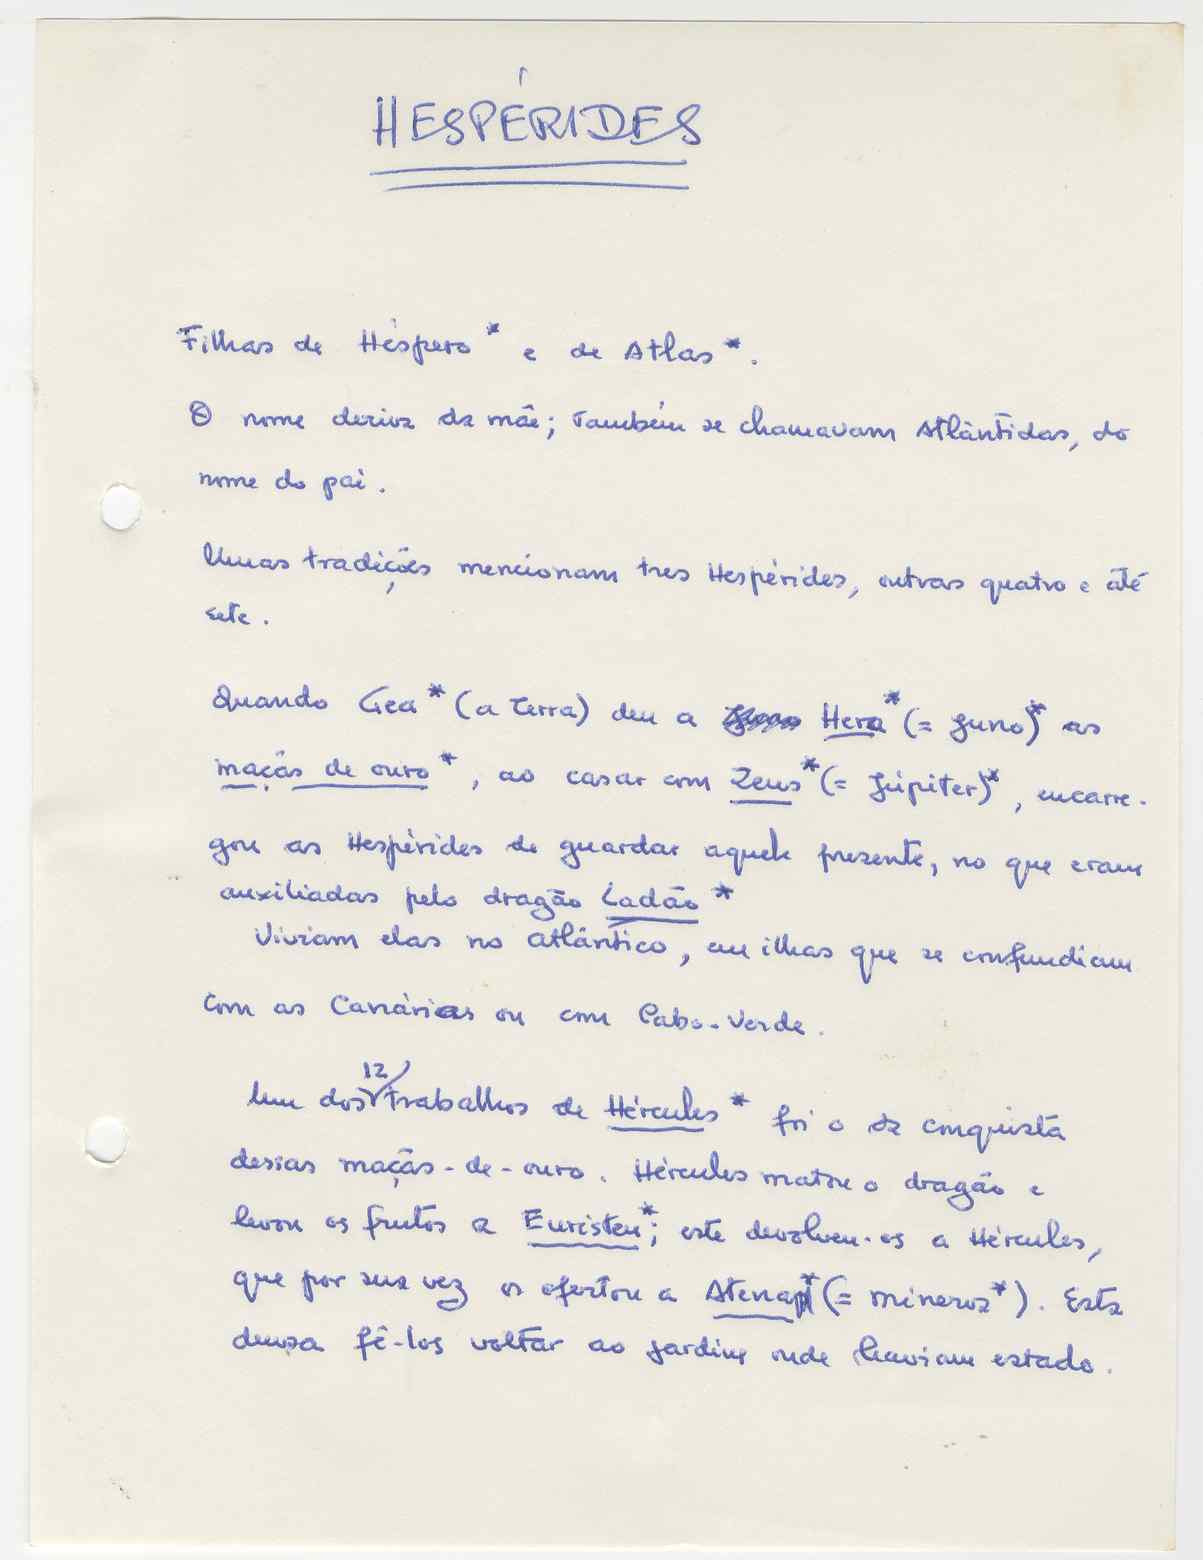 HESPÉRIDES
Filhas de Héspero* e de Atlas*.
O nome deriva da mãe; também se chamavam Atlântidas, do
nome do pai.
Umas tradições mencionam tres Hespérides, outras quatro e até
sete.
Quando Gea* (a Terra) deu a Hera* (= Juno)* as
maçãs de ouro*, ao casar com Zeus* (= Júpiter)*, encarre-
gou as Hespérides de guardar aquele presente, no que eram
auxiliadas pelo dragão Ladão*
Viviam elas no atlântico, em ilhas que se confundiam
com as Canárias ou com Cabo-Verde.
Um dos 12 trabalhos de Hércules* foi o da conquista
dessas maçãs-de-ouro. Hércules matou o dragão e
levou os frutos a Euristeu*; este devolveu-os a Hércules,
que por sua vez os ofertou a Atena* (= Minerva*). Esta
deusa fê-los voltar ao jardim onde haviam estado.